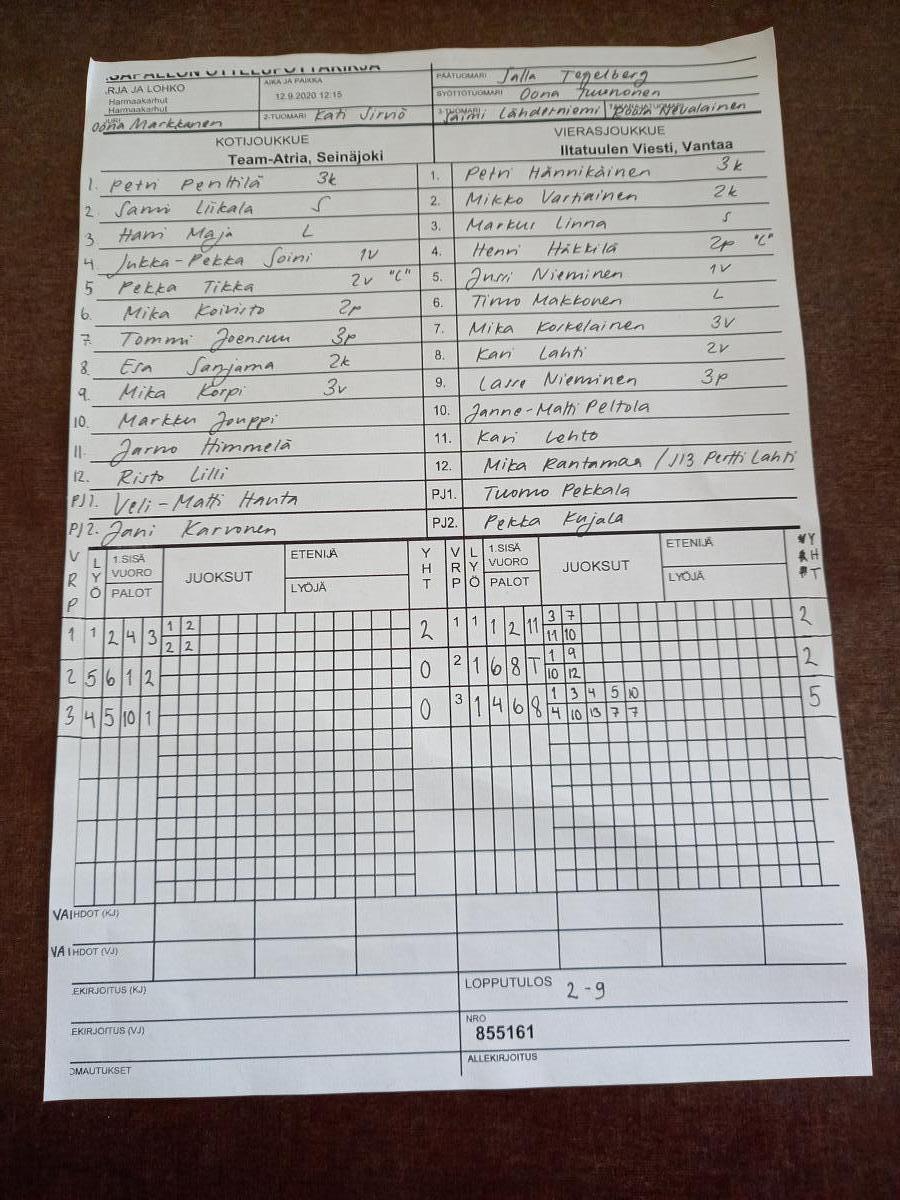 RJA JA LOHKO
Harmaakarhut
Harmaakarhut
Oona Markkanen
AIKA JA PAIKKA
12.9.2020 12:15
2-TUOMARI Kati Sirnö
PÄÄTUOMARI Salla Tegelberg
SYÖTTÖTUOMARI Oona Tuunonen
3-TUOMARI Saimi Lähderniemi Roosa Nevalainen
KOTIJOUKKUE
Team-Atria, Seinäjoki
VIERASJOUKKUE
Iltatuulen Viesti, Vantaa
1. Petri Penttilä 3k
2. Sami Liikala S
3. Harri Maja L
4. Jukka-Pekka Soini 1v
5 Pekka Tikka 2v "C"
6. Mika Koivisto 2p
7. Tommi Joensuu 3p
8. Esa Sanjama 2k
9. Mika Korpi 3v
10. Markku Jouppi
11. Jarno Himmelä
12. Risto Lilli
PJ1. Veli-Matti Hanta
PJ2. Jani Karvonen
1. Petri Hännikäinen 3k
2. Mikko Vartiainen 2k
3. Markus Linna S
4. Henri Häkkilä 2p "C"
5. Jussi Nieminen 1v
6. Timo Makkonen L
7. Mika Korkelainen 3v
8. Kari Lahti 2v
9. Lasse Nieminen 3p
10. Janne-Matti Peltola
11. Kari Lehto
12. Mika Rantamaa / J13 Pertti Lahti
PJ1. Tuomo Pekkala
PJ2. Pekka Kujala
VRP LYÖ 1.SISÄ VUORO PALOT JUOKSUT ETENIJÄ LYÖJÄ YHT
VRP LYÖ 1.SISÄ VUORO PALOT JUOKSUT ETENIJÄ LYÖJÄ YHT
1 1 2 4 3 1 2 2
2 2
2 5 6 1 2 0
3 4 5 10 1 0
1 1 1 2 11 3 7 2
11 10
2 1 6 8 T 1 9 2
10 12
3 1 4 6 8 1 3 4 5 10 5
4 10 13 7 7
VAIHDOT (KJ)
VAIHDOT (VJ)
EKIRJOITUS (KJ)
LOPPUTULOS 2-9
EKIRJOITUS (VJ)
NRO
855161
OMAUTUKSET
ALLEKIRJOITUS